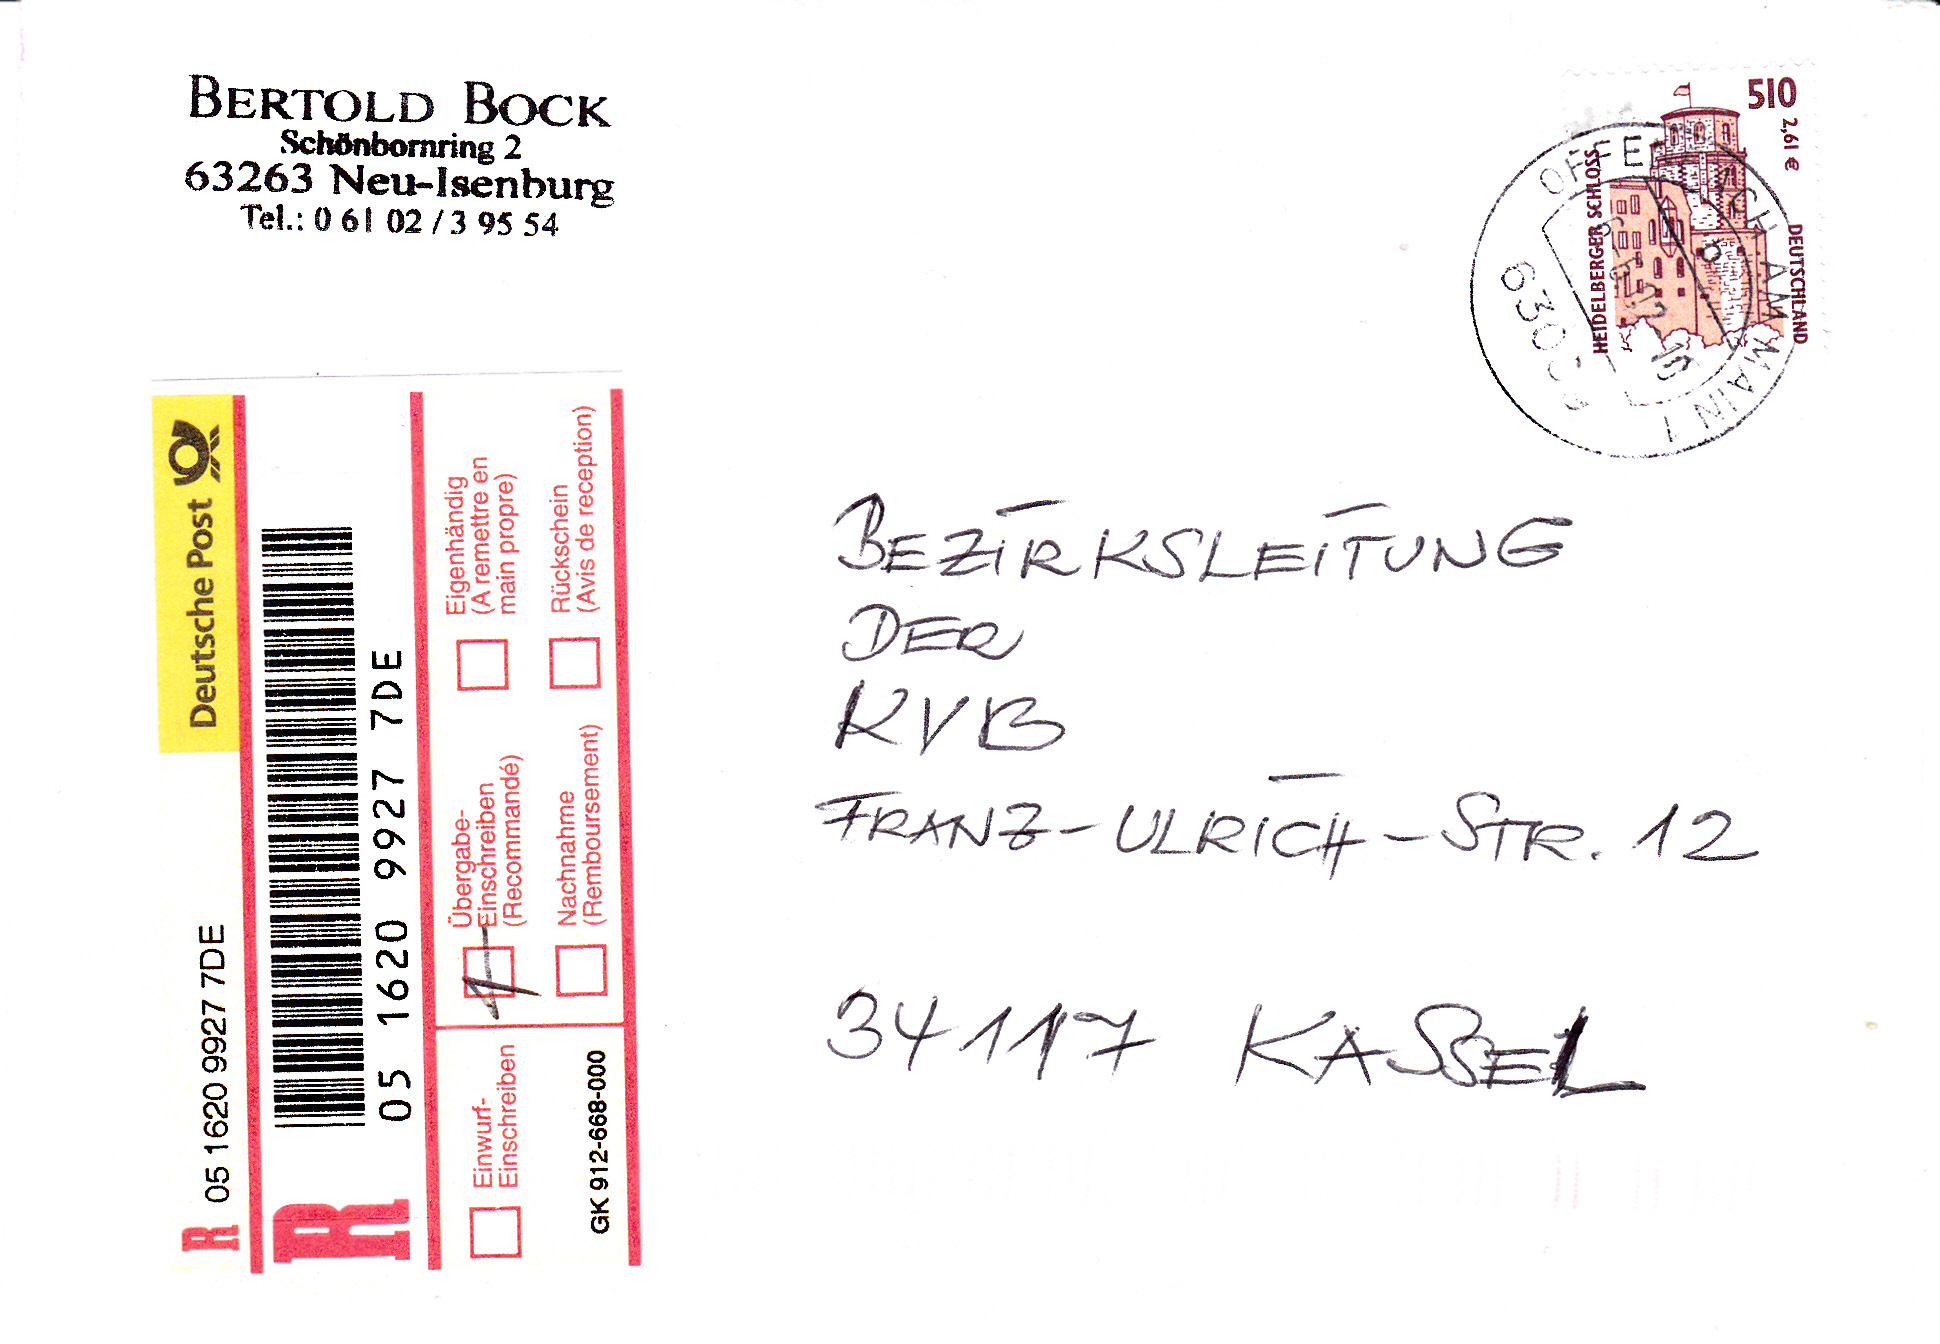 BERTOLD BOCK
Schönbornring 2
63263 Neu-Isenburg
Tel.: 0 61 02 / 3 95 54
510
2,61 €
HEIDELBERGER SCHLOSS
DEUTSCHLAND
OFFENBACH AM MAIN 1
Deutsche Post
R 05 1620 9927 7DE
R
05 1620 9927 7DE
Einwurf-
Einschreiben
Übergabe-
Einschreiben
(Recommandé)
Eigenhändig
(A remettre en
main propre)
Nachnahme
(Remboursement)
Rückschein
(Avis de reception)
GK 912-668-000
BEZIRKSLEITUNG
DER
KVB
FRANZ-ULRICH-STR. 12
34117 KASSEL